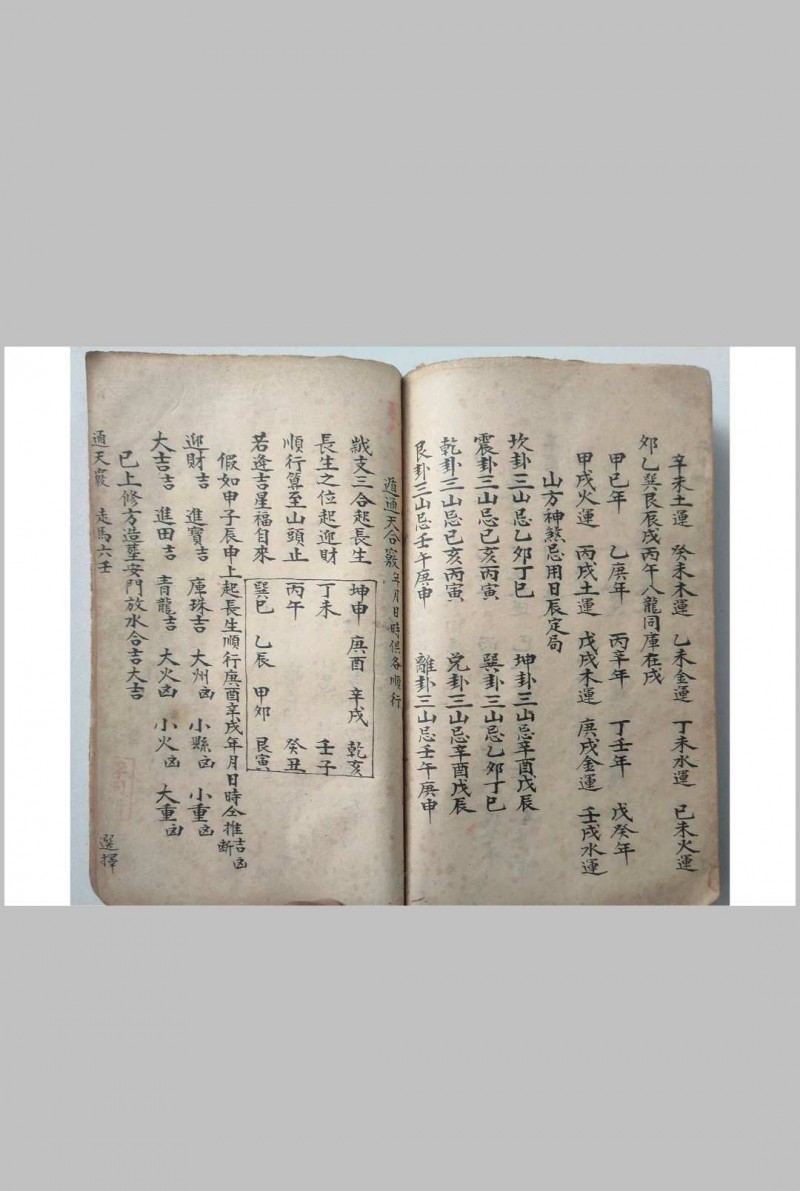 辛未土運 癸未木運 乙未金運 丁未水運 己未火運
夘乙巽艮辰戌丙午八龍同庫在戌
甲己年 乙庚年 丙辛年 丁壬年 戊癸年
甲戌火運 丙戌土運 戊戌木運 庚戌金運 壬戌水運
山方神煞忌用日辰定局
坎卦三山忌乙夘丁巳 坤卦三山忌辛酉戊辰
震卦三山忌己亥丙寅 巽卦三山忌乙夘丁巳
乾卦三山忌己亥丙寅 兌卦三山忌辛酉戊辰
艮卦三山忌壬午庚申 離卦三山忌壬午庚申
遁通天合竅年月日時俱各順行
支三合起長生 坤申 庚酉 辛戌 乾亥
長生之位起迎財 丁未 壬子
順行算至山頭止 丙午 癸丑
若逢吉星福自來 巽巳 乙辰 甲夘 艮寅
假如申子辰申上起長生順行庚酉辛戌年月日時仝推吉凶断
迎財吉 進寶吉 庫珠吉 大州凶 小縣凶 小重凶
大吉吉 進田吉 青龍吉 大火凶 小火凶 大重凶
已上修方造塟安門放水合吉大吉
通天竅 走馬六壬 選擇